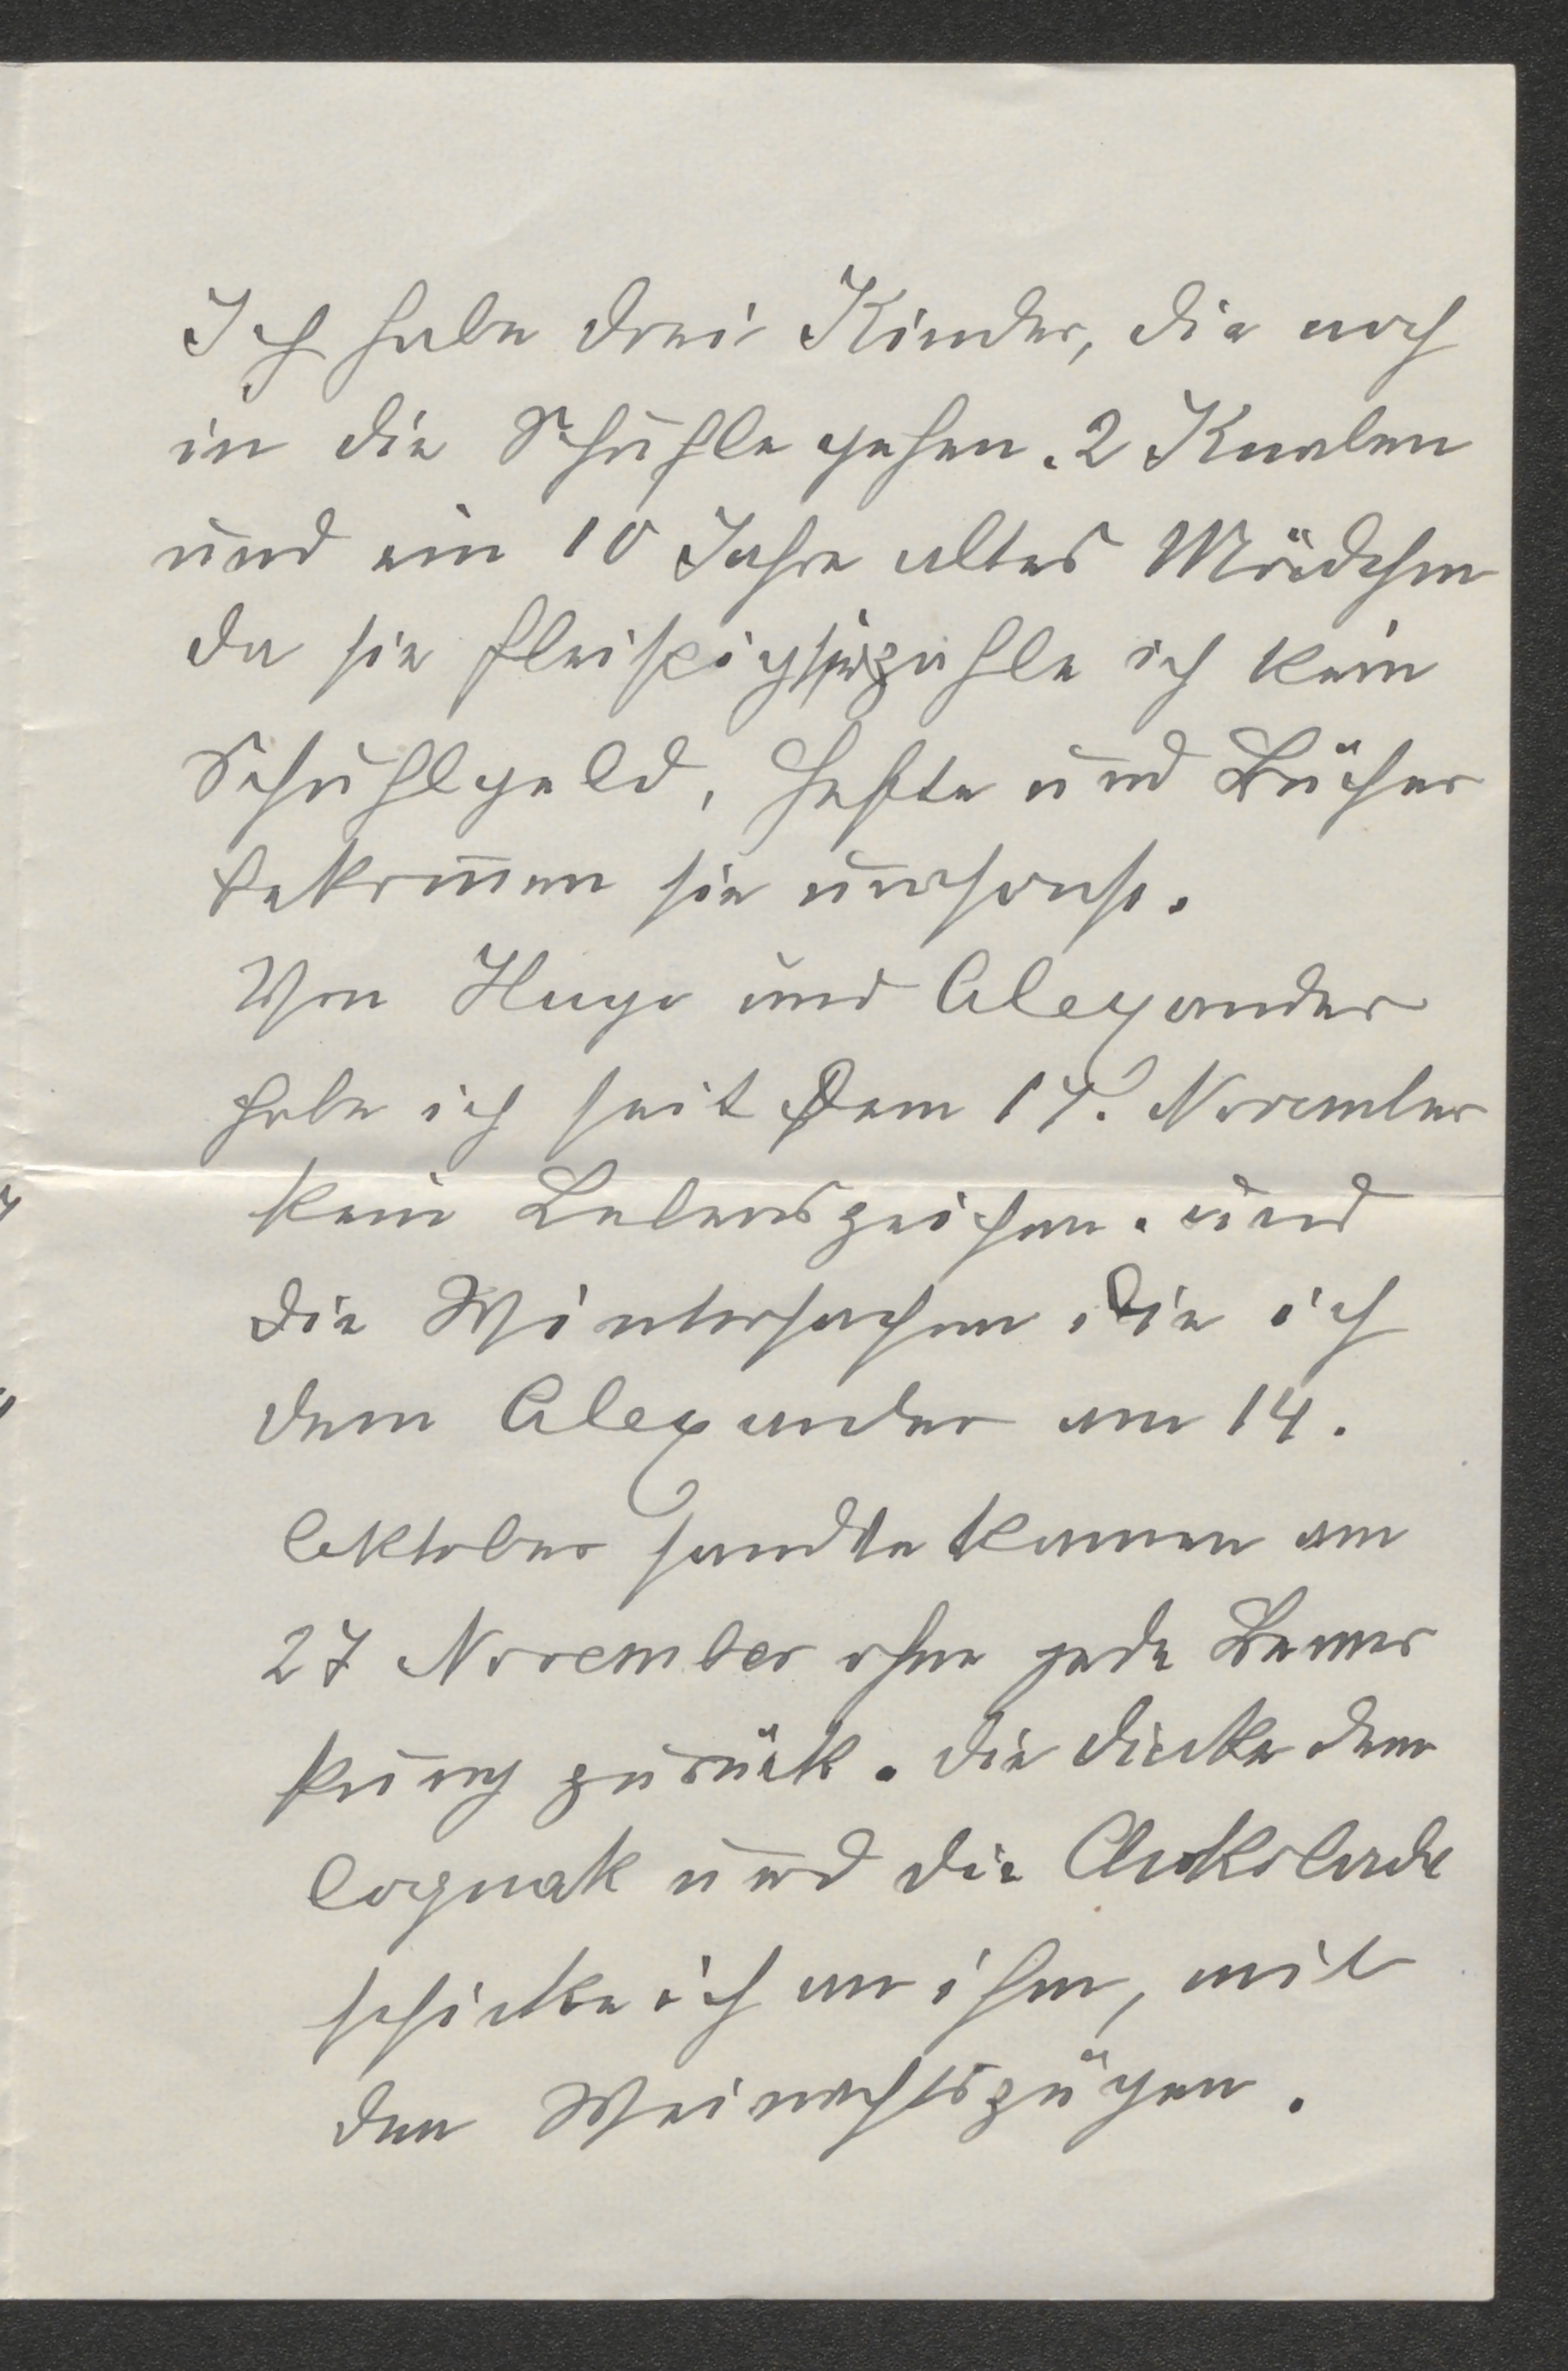 Ich habe drei Kinder, die noch
in die Schuhle gehen. 2 Knaben
und ein 10 Jahre altes Mädchen
da sie fleißig sin zahle ich kein
Schuhlgeld, Hefte und Bücher
bekom̅en sie umsonst.
Von Hugo und Alexander
habe ich seit dem 17. November
kein Lebenszeichen. und
die Wintersachen, die ich
dem Alexander am 14.
Oktober sandte kamen am
27 November ohne jede Bemer
kung zurück. die Decke den
Cognak und die Chokolade
schickte ich an ihm, mit
den Weinachtszügen.